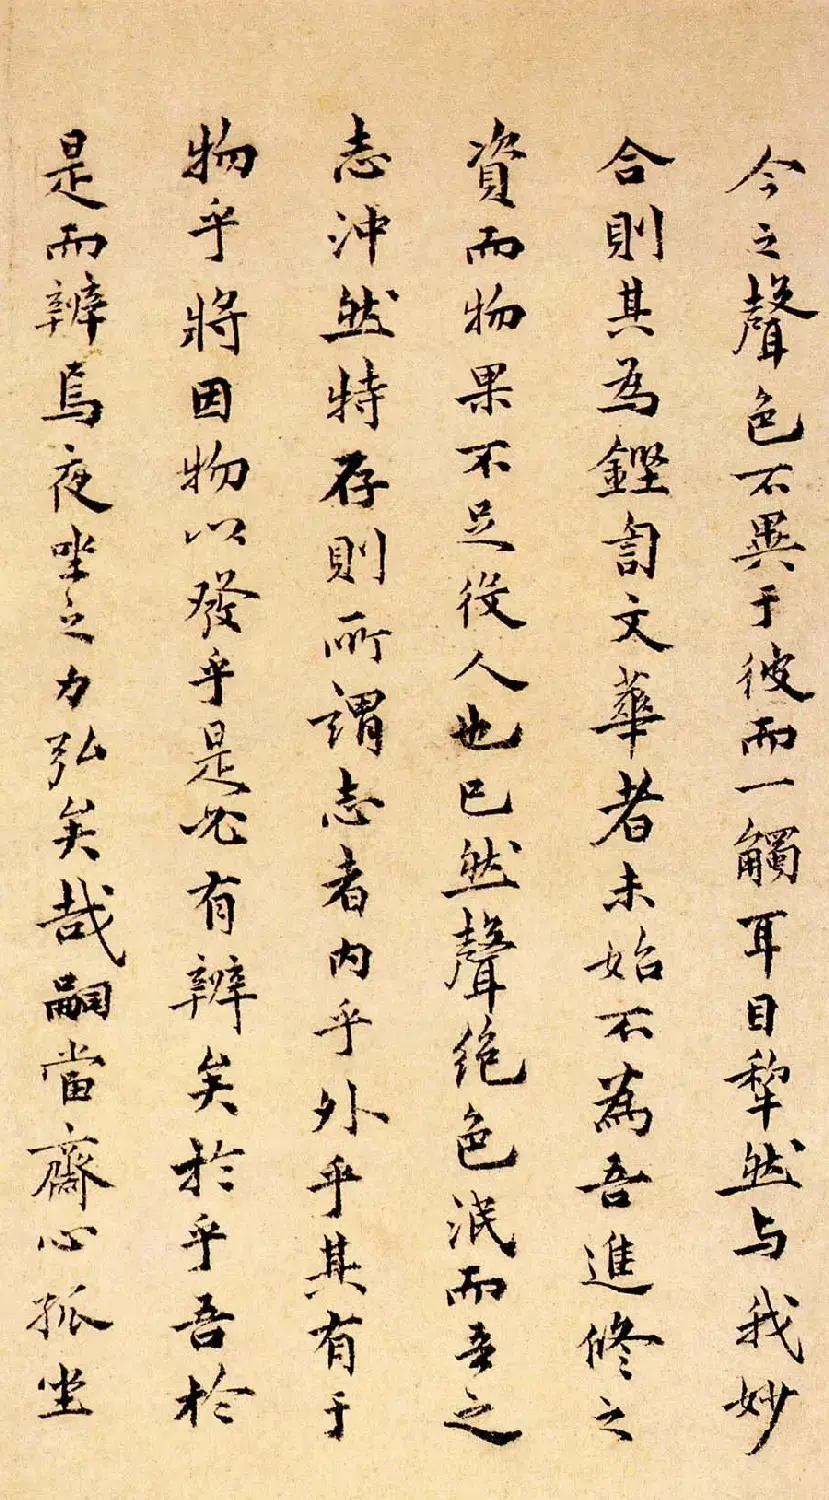 今之聲色不異于彼而一觸耳目犁然与我妙
合則其為鏗訇文華者未始不為吾進修之
資而物果不足役人也已然聲絕色泯而吾之
志沖然特存則所謂志者內乎外乎其有于
物乎將因物以發乎是必有辨矣於乎吾於
是而辨焉夜坐之力弘矣哉嗣當齋心孤坐